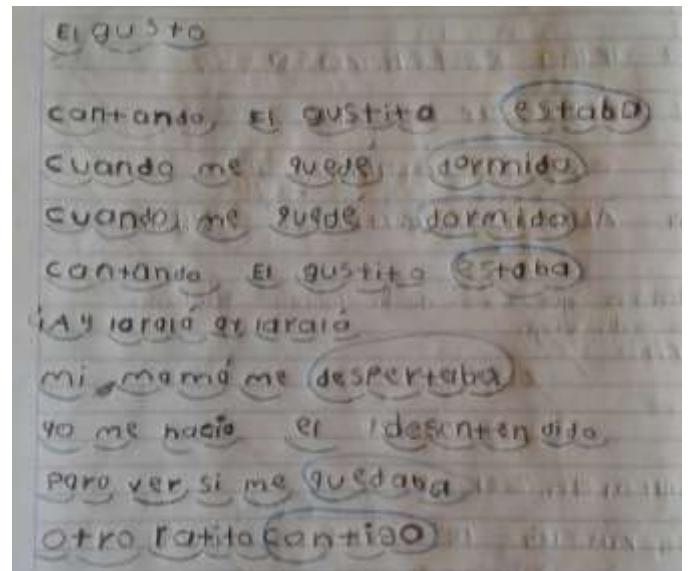 El gusto
cantando, El gustito estaba
cuando me quedé dormido
cuando me quedé dormido
cantando El gustito estaba
¡Ay laralá ay laralá
mi mamá me despertaba
yo me hacía el desentendido
para ver si me quedaba
otro ratito contigo